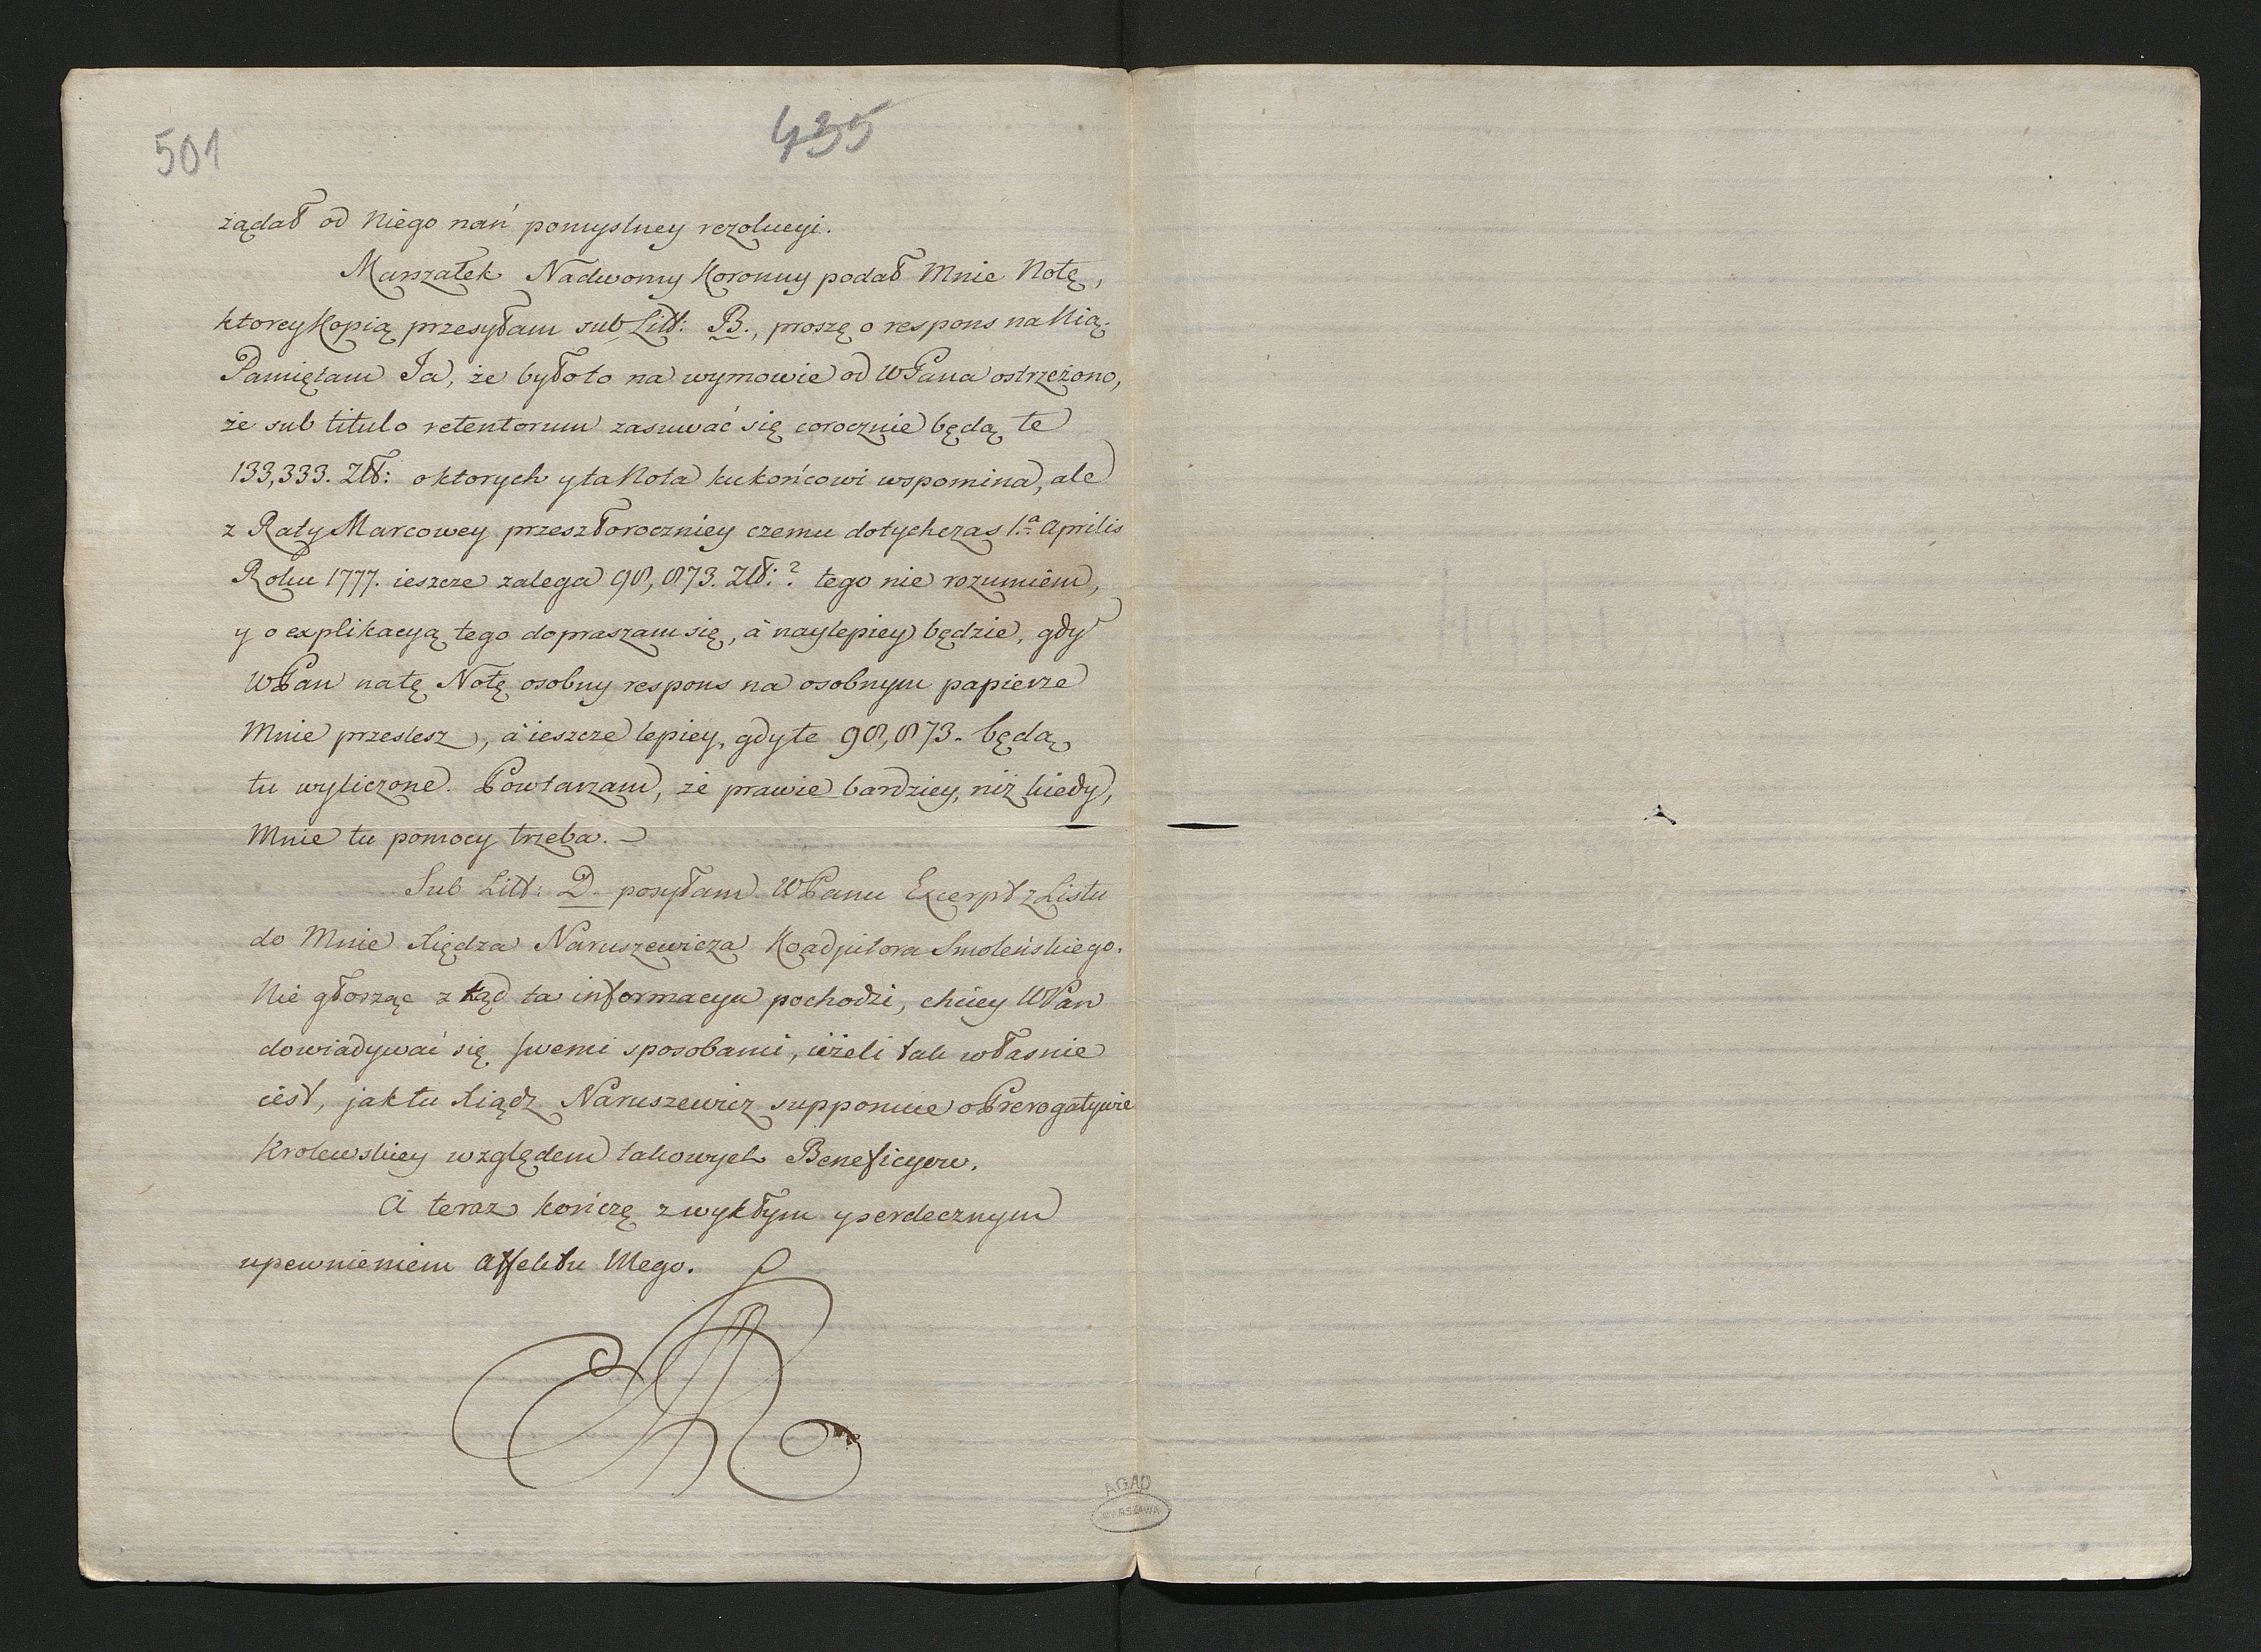 501
435
żądał od Niego nań pomyslney rezolucyi.
Marszałek Nadworny Koronny podał Mnie Notę,
ktorey Kopią przesyłam sub Litt: B., proszę o respons na Nią.
Pamiętam Ja, że było to na wymowie od WPana ostrzeżono,
że sub titulo retentorum zasuwać się corocznie będą te
133,333. Złł: o ktorych y ta Nota ku końcowi wspomina, ale
z Raty Marcowey przeszłoroczniey czemu dotychczas 1.a Aprilis
Roku 1777. ieszcze zalega 98,873. Złł:? tego nie rozumiem,
y o explikacyą tego dopraszam się, à naylepiey będzie, gdy
WPan na tę Notę osobny respons na osobnym papierze
Mnie przeslesz, à ieszcze lepiey, gdy te 98,873. będą
tu wyliczone. Powtarzam, że prawie bardziey, niż kiedy,
Mnie tu pomocy trzeba.
Sub Litt: D. posyłam WPanu Excerpt z Listu
do Mnie Xiędza Naruszewicza Koadjutora Smoleńskiego.
Nie głosząc z kąd ta informacya pochodzi, chciey WPan
dowiadywać się swemi sposobami, ieżeli tak własnie
iest, jak tu Xiądz Naruszewicz supponuie o Prerogatywie
Krolewskiey względem takowych Beneficyow.
à teraz kończę zwykłym y serdecznym
upewnieniem Affektu Mego.
AGAD
WARSZAWA